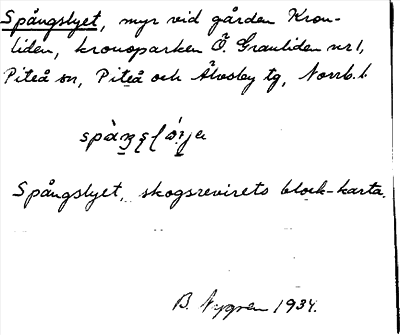 Spångslyet, myr vid gården Kron-
liden, kronoparken Ö. Granliden nr 1,
Piteå sn, Piteå och Älvsby tg, Norrb. l
Spångslyet, skogsrevirets block-karta.
B. Nygren 1934.